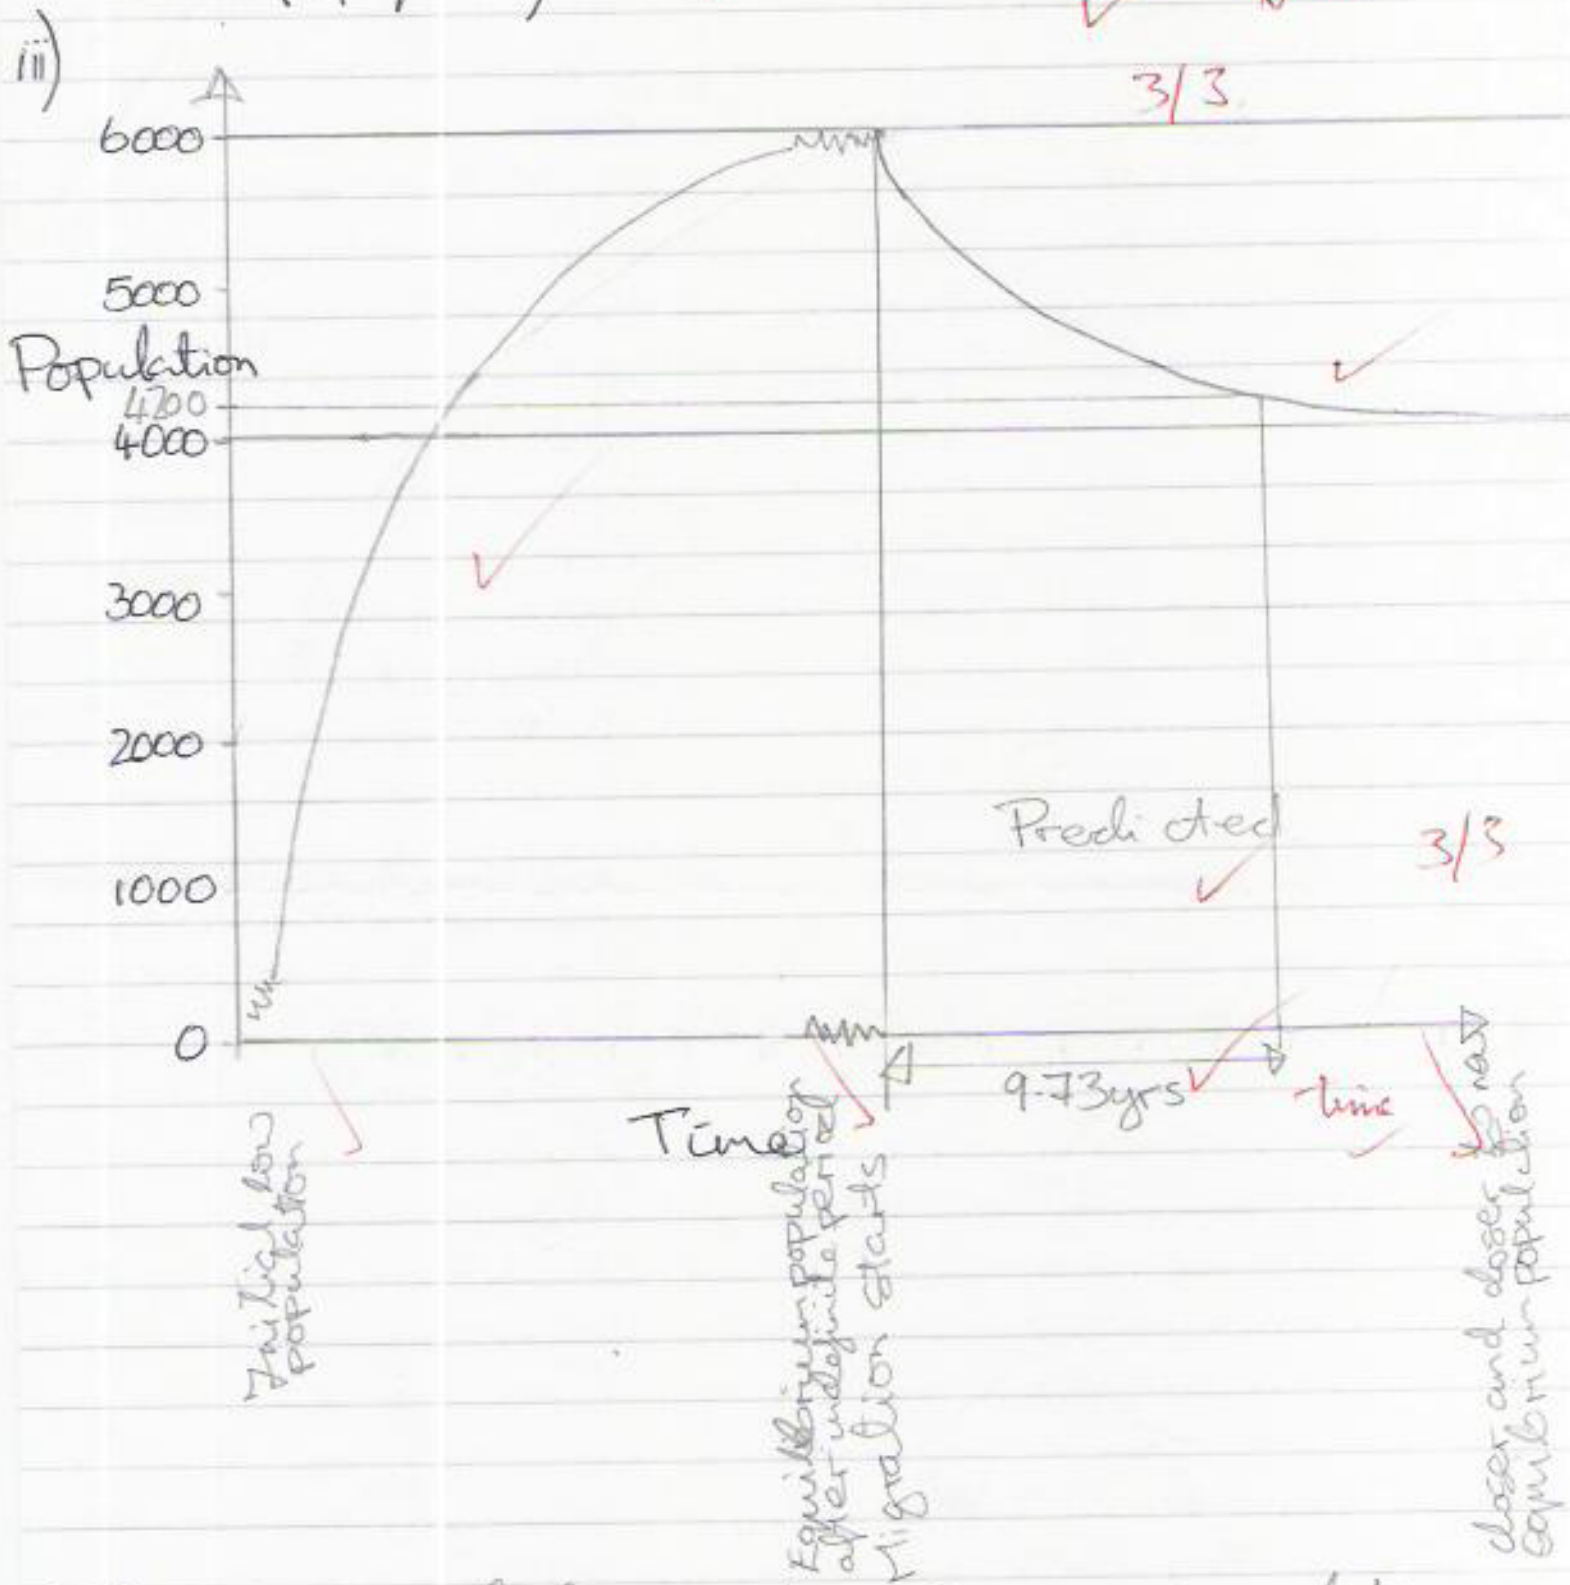 iii)
3/3
6000
5000
Population
4200
4000
3000
2000
Predicted
3/3
1000
0
9.73yrs
Time
time
Initial low
population
Equilibrium population
after indefinite period
Migration starts
closer and closer to new
equilibrium population